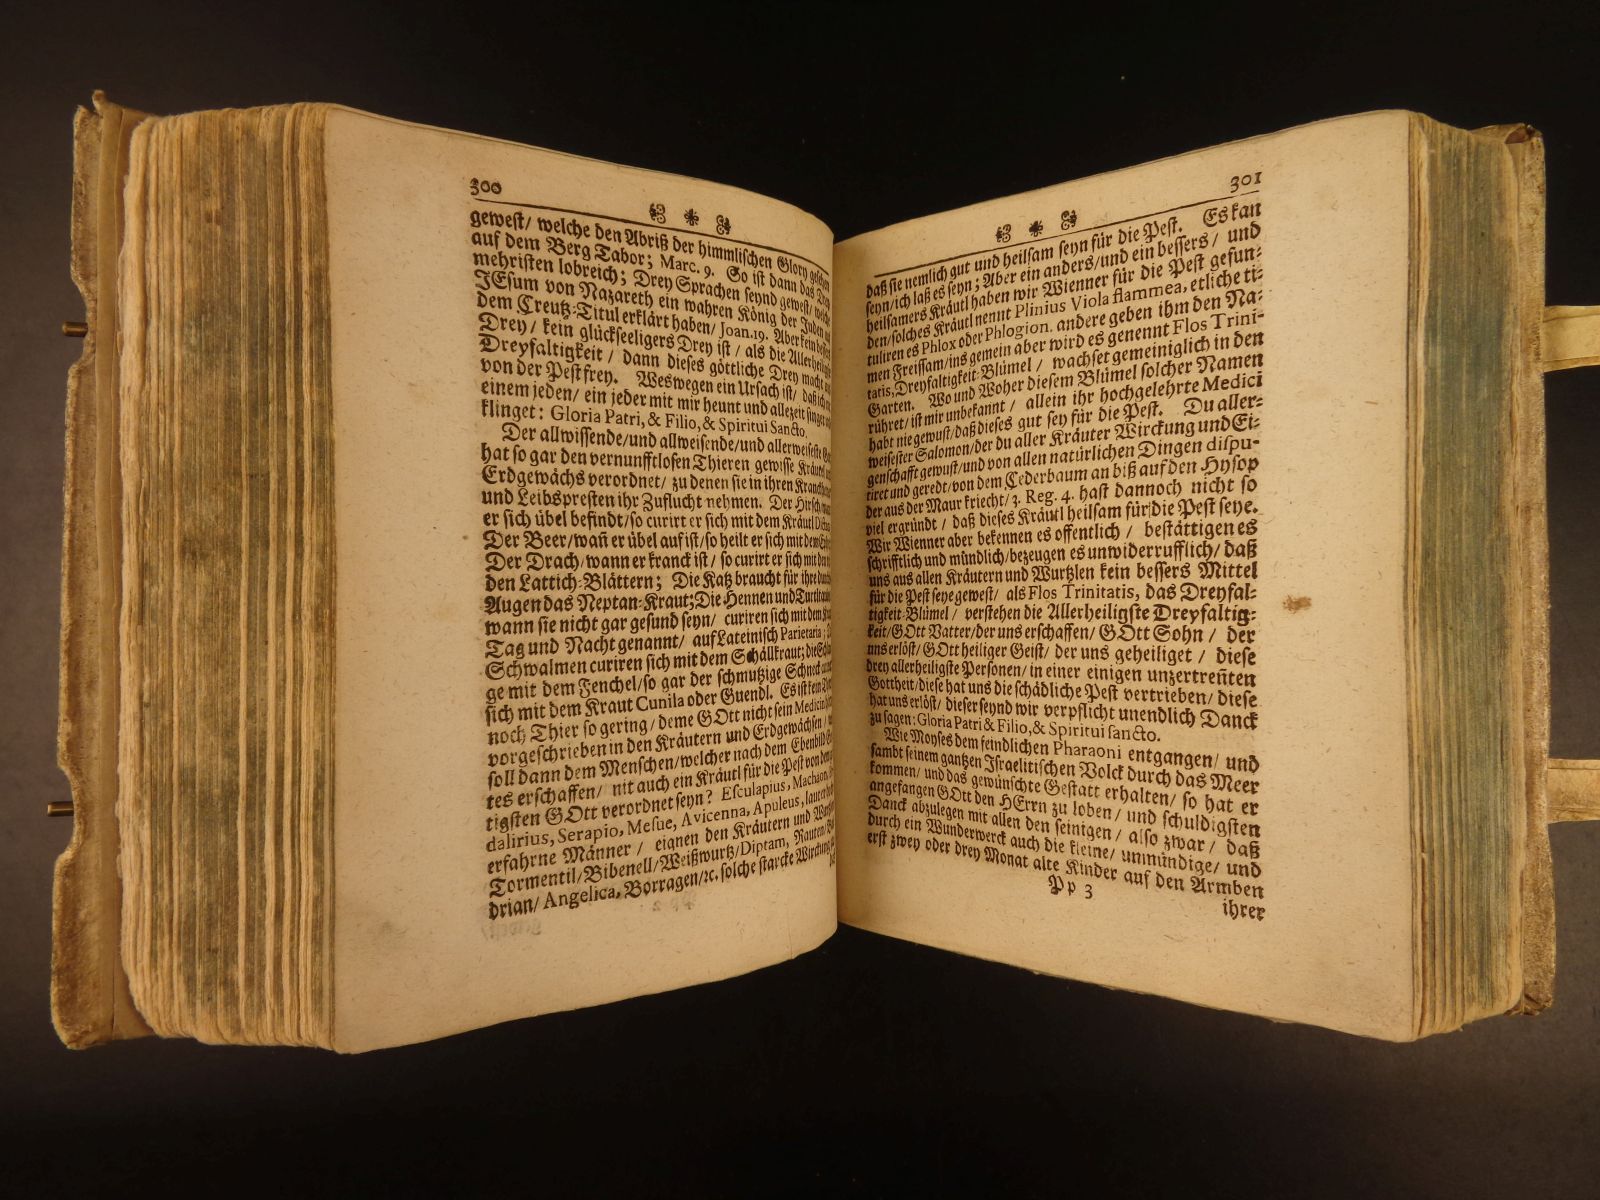 300
gewest/ welche den Abriß der himmlischen Glory gesehen
auf dem Berg Tabor; Marc. 9. So ist dann das Drey
mehristen lobreich; Drey Sprachen seynd gewest/ welche
JEsum von Nazareth ein wahren König der Juden auf
dem Creutz-Titul erklärt haben/ Joan. 19. Aber kein besser
Drey/ kein glückseeligers Drey ist/ als die Allerheiligste
Dreyfaltigkeit/ dann dieses göttliche Drey macht uns
von der Pest frey. Weswegen ein Ursach ist/ daß ich mit
einem jeden/ ein jeder mit mir heunt und allezeit singet und
klinget: Gloria Patri, & Filio, & Spiritui Sancto.
Der allwissende/und allweisende/und allerweiseste GOtt
hat so gar den vernunfftlosen Thieren gewisse Kräutl und
Erdgewächs verordnet/ zu denen sie in ihren Kranckheiten
und Leibspresten ihr Zuflucht nehmen. Der Hirsch/wann
er sich übel befindt/so curirt er sich mit dem Kräutl
Der Beer/wañ er übel auf ist/so heilt er sich mit dem
Der Drach/wann er kranck ist/ so curirt er sich mit
den Lattich-Blättern; Die Katz braucht für ihre
Augen das Neptan-Kraut; Die Hennen und Turteltauben
wann sie nicht gar gesund seyn/ curiren sich mit dem Kraut
Tag und Nacht genannt/ auf Lateinisch Parietaria;
Schwalmen curiren sich mit dem Schällkraut; die
ge mit dem Fenchel/so gar der schmutzige Schneck
sich mit dem Kraut Cunila oder Guendl. Es ist kein
noch Thier so gering/ deme GOtt nicht sein Medicin
vorgeschrieben in den Kräutern und Erdgewächsen/
soll dann dem Menschen/welcher nach dem Ebenbild
tes erschaffen/ nit auch ein Kräutl für die Pest von dem
tigsten GOtt verordnet seyn? Esculapius, Machaon,
dalirius, Serapio, Mesue, Avicenna, Apuleus, lauter
erfahrne Männer/ eignen den Kräutern und Wurtzen
Tormentil/Bibenell/Weißwurtz/Diptam, Rauten/
drian/ Angelica, Borragen/ꝛc. solche starcke Wirckung
301
daß sie nemlich gut und heilsam seyn für die Pest. Es kan
seyn/ich laß es seyn; Aber ein anders/und ein bessers/ und
heilsamers Kräutl haben wir Wienner für die Pest gefun-
den/solches Kräutl nennt Plinius Viola flammea, etliche ti-
tuliren es Phlox oder Phlogion. andere geben ihm den Na-
men Freissam/ins gemein aber wird es genennt Flos Trini-
tatis, Dreyfaltigkeit-Blümel/ wachset gemeiniglich in den
Garten. Wo und Woher diesem Blümel solcher Namen
rühret/ist mir unbekannt/ allein ihr hochgelehrte Medici
habt nie gewust/daß dieses gut sey für die Pest. Du aller-
weisester Salomon/der du aller Kräuter Wirckung und Ei-
genschafft gewust/und von allen natürlichen Dingen dispu-
tiret und geredt/von dem Cederbaum an biß auf den Hysop
der aus der Maur kriecht/3. Reg. 4. hast dannoch nicht so
viel ergründt/ daß dieses Kräutl heilsam für die Pest seye.
Wir Wienner aber bekennen es offentlich/ bestättigen es
schrifftlich und mündlich/bezeugen es unwiderrufflich/ daß
uns aus allen Kräutern und Wurtzlen kein bessers Mittel
für die Pest seye gewest/ als Flos Trinitatis, das Dreyfal-
tigkeit-Blümel/ verstehen die Allerheiligste Dreyfaltig-
keit/GOtt Vatter/der uns erschaffen/GOtt Sohn/ der
uns erlöst/GOtt heiliger Geist/ der uns geheiliget/ diese
drey allerheiligste Personen/ in einer einigen unzertreñten
Gottheit/diese hat uns die schädliche Pest vertrieben/ diese
hat uns erlöst/ dieser seynd wir verpflicht unendlich Danck
zu sagen: Gloria Patri & Filio, & Spiritui sancto.
Wie Moyses dem feindlichen Pharaoni entgangen/ und
sambt seinem gantzen Israelitischen Volck durch das Meer
kommen/ und das gewünschte Gestatt erhalten/ so hat er
angefangen GOtt den HErrn zu loben/ und schuldigsten
Danck abzulegen mit allen den seinigen/ also zwar/ daß
durch ein Wunderwerck auch die kleine/ unmündige/ und
erst zwey oder drey Monat alte Kinder auf den Armben
Pp 3
ihrer